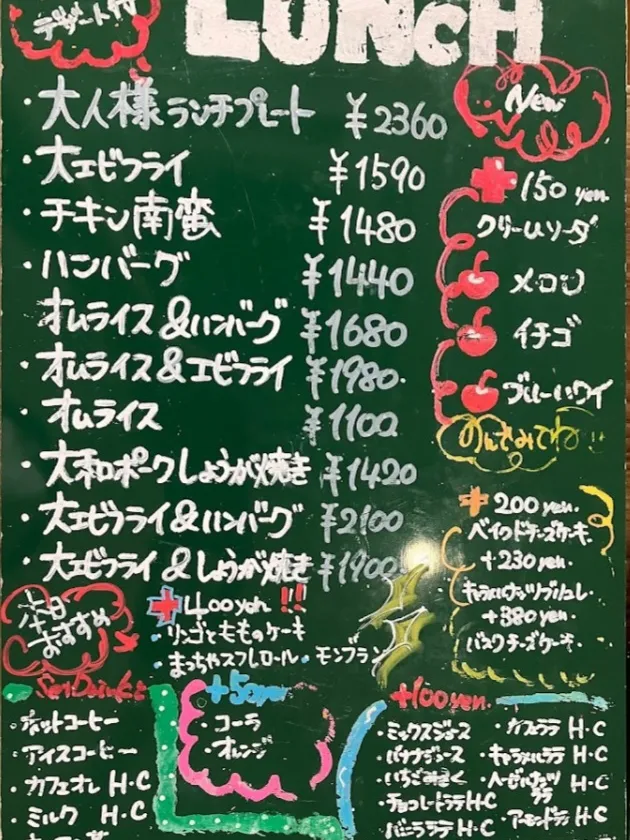 デザート付
LUNCH
・大人様ランチプレート ¥2360
・大エビフライ ¥1590
・チキン南蛮 ¥1480
・ハンバーグ ¥1440
・オムライス&ハンバーグ ¥1680
・オムライス&エビフライ ¥1980.
・オムライス ¥1100
・大和ポークしょうが焼き ¥1420
・大エビフライ&ハンバーグ ¥2100
・大エビフライ&しょうが焼き ¥1900
New
+150 yen.
クリームソーダ
メロン
イチゴ
ブルーハワイ
のんでみてね!!
+200 yen.
ベイクドチーズケーキ.
+230 yen.
+380 yen.
バスクチーズケーキ.
本日
おすすめ
+400yen!!
・リンゴとももの ケーキ
・まっちゃスフレロール・モンブラン
Set Drink
・ホットコーヒー
・アイスコーヒー
・カフェオレ H・C
・ミルク H・C
+50yen
・コーラ
・オレンジ
+100yen.
・ミックスジュース
・バナナジュース
・いちごみるく
・チョコレートラテH・C
・バニララテ H・C
・カフェラテ H・C
・キャラメルラテ H・C
・ヘーゼルナッツ
ラテ H・C
・アーモンドラテ H・C